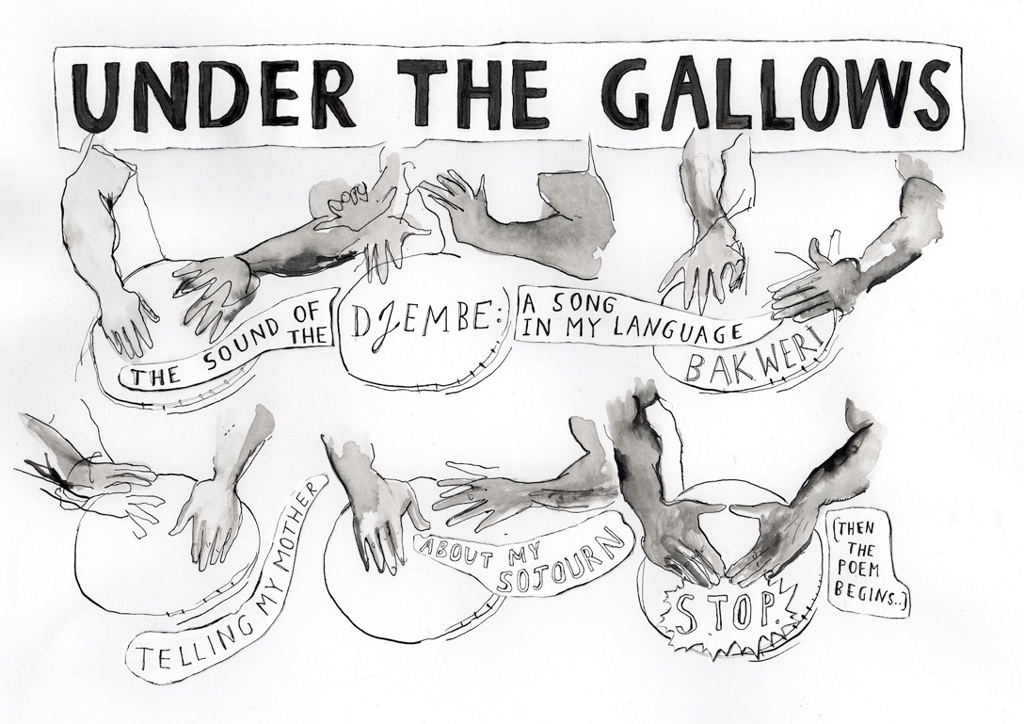 UNDER THE GALLOWS
THE SOUND OF
THE
DJEMBE:
A SONG
IN MY LANGUAGE
BAKWERI
TELLING MY MOTHER
ABOUT MY
SOJOURN
STOP.
(THEN
THE
POEM
BEGINS..)